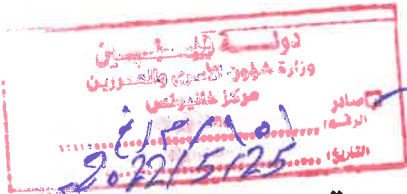 دولـــة فلســـطين
وزارة شؤون الأسرى والمحررين
مركز خانيونس
صادر
الرقم:
التاريخ: 2022/5/25